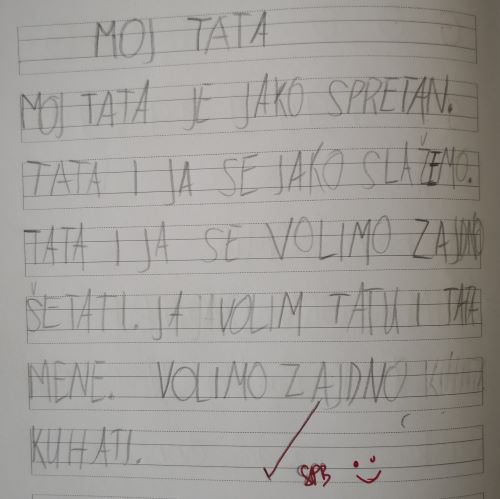 MOJ TATA
MOJ TATA JE JAKO SPRETAN.
TATA I JA SE JAKO SLAŽEMO.
TATA I JA SE VOLIMO ZAJDNO
ŠETATI. JA VOLIM TATU I TATA
MENE. VOLIMO ZAJDNO
KUHATI.